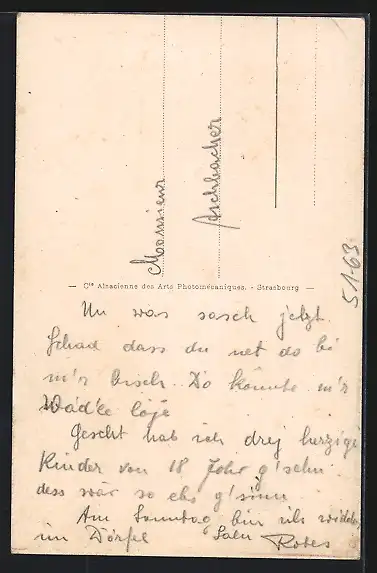 Monsieur
Aschbacher
— Cie Alsacienne des Arts Photomécaniques. - Strasbourg —
5163
Un was sasch jetzt.
Schad dass du net do bi
m'r bisch. Do könnte m'r
Wäd'le löje
Gescht hab ich drej herzige
Kinder von 18 Johr g'sehn
dess wär so ebs g'sinn
Am Sonntag bin ich widder
im Dörfel Salü